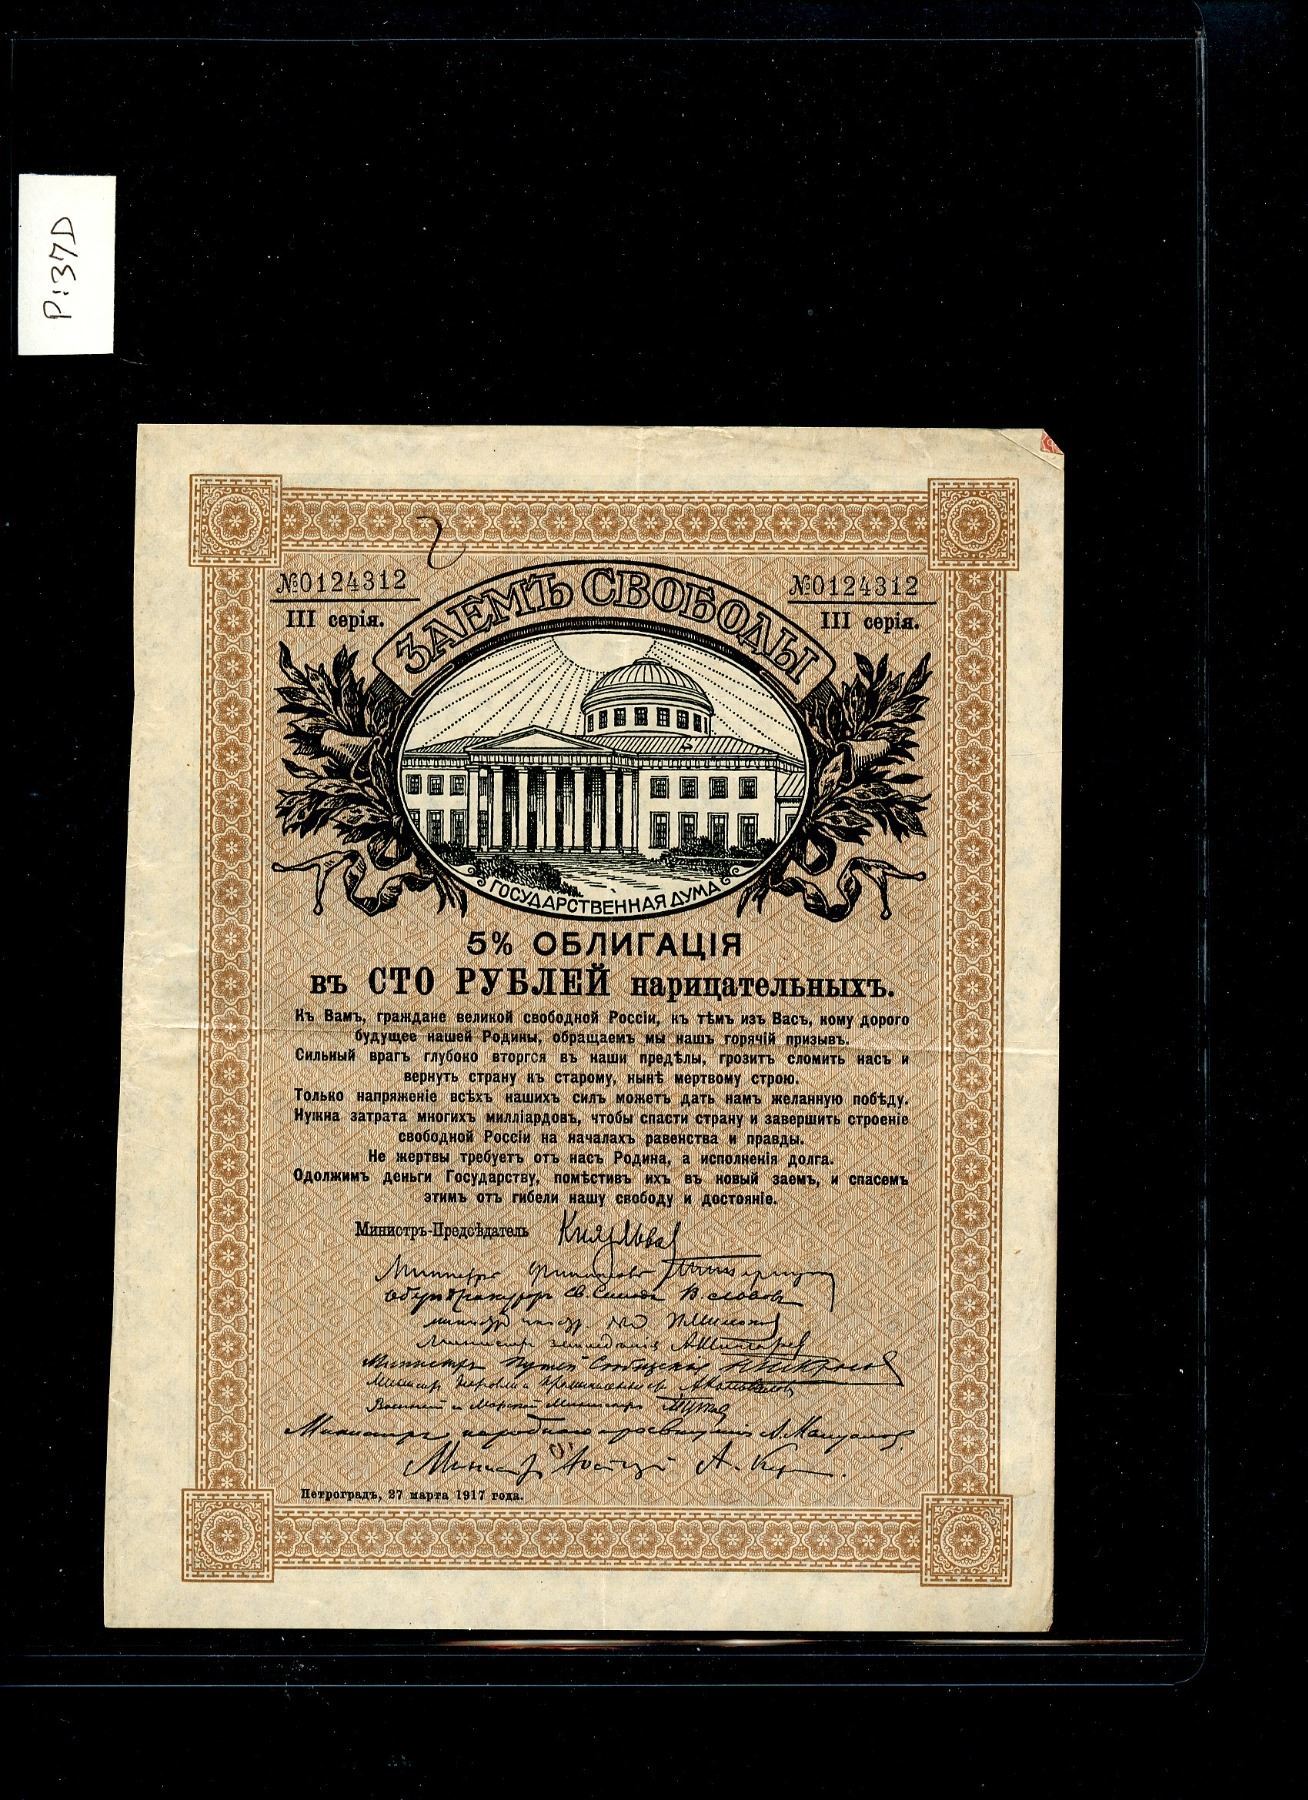 P:37D
№0124312
III серія.
№0124312
III серія.
ЗАЕМЪ СВОБОДЫ
ГОСУДАРСТВЕННАЯ ДУМА
5% ОБЛИГАЦІЯ
въ СТО РУБЛЕЙ нарицательныхъ.
Къ Вамъ, граждане великой свободной Россіи, къ тѣмъ изъ Васъ, кому дорого
будущее нашей Родины, обращаемъ мы нашъ горячій призывъ.
Сильный врагъ глубоко вторгся въ наши предѣлы, грозитъ сломить насъ и
вернуть страну къ старому, нынѣ мертвому строю.
Только напряженіе всѣхъ нашихъ силъ можетъ дать намъ желанную побѣду.
Нужна затрата многихъ милліардовъ, чтобы спасти страну и завершить строеніе
свободной Россіи на началахъ равенства и правды.
Не жертвы требуетъ отъ насъ Родина, а исполненія долга.
Одолжимъ деньги Государству, помѣстивъ ихъ въ новый заемъ, и спасемъ
этимъ отъ гибели нашу свободу и достояніе.
Министръ-Предсѣдатель Князь Львов
Министръ Финансовъ
Св. Синода В. Львовъ
Министр земледѣлія А. Шингарев
Министръ Путей Сообщенія Н. Некрасов
Министр Торговли и Промышленности А. Коновалов
Военный и Морской Министръ
Министръ народнаго просвѣщенія А. Мануйлов
Министр Юстиціи А. Керенскій
Петроградъ, 27 марта 1917 года.